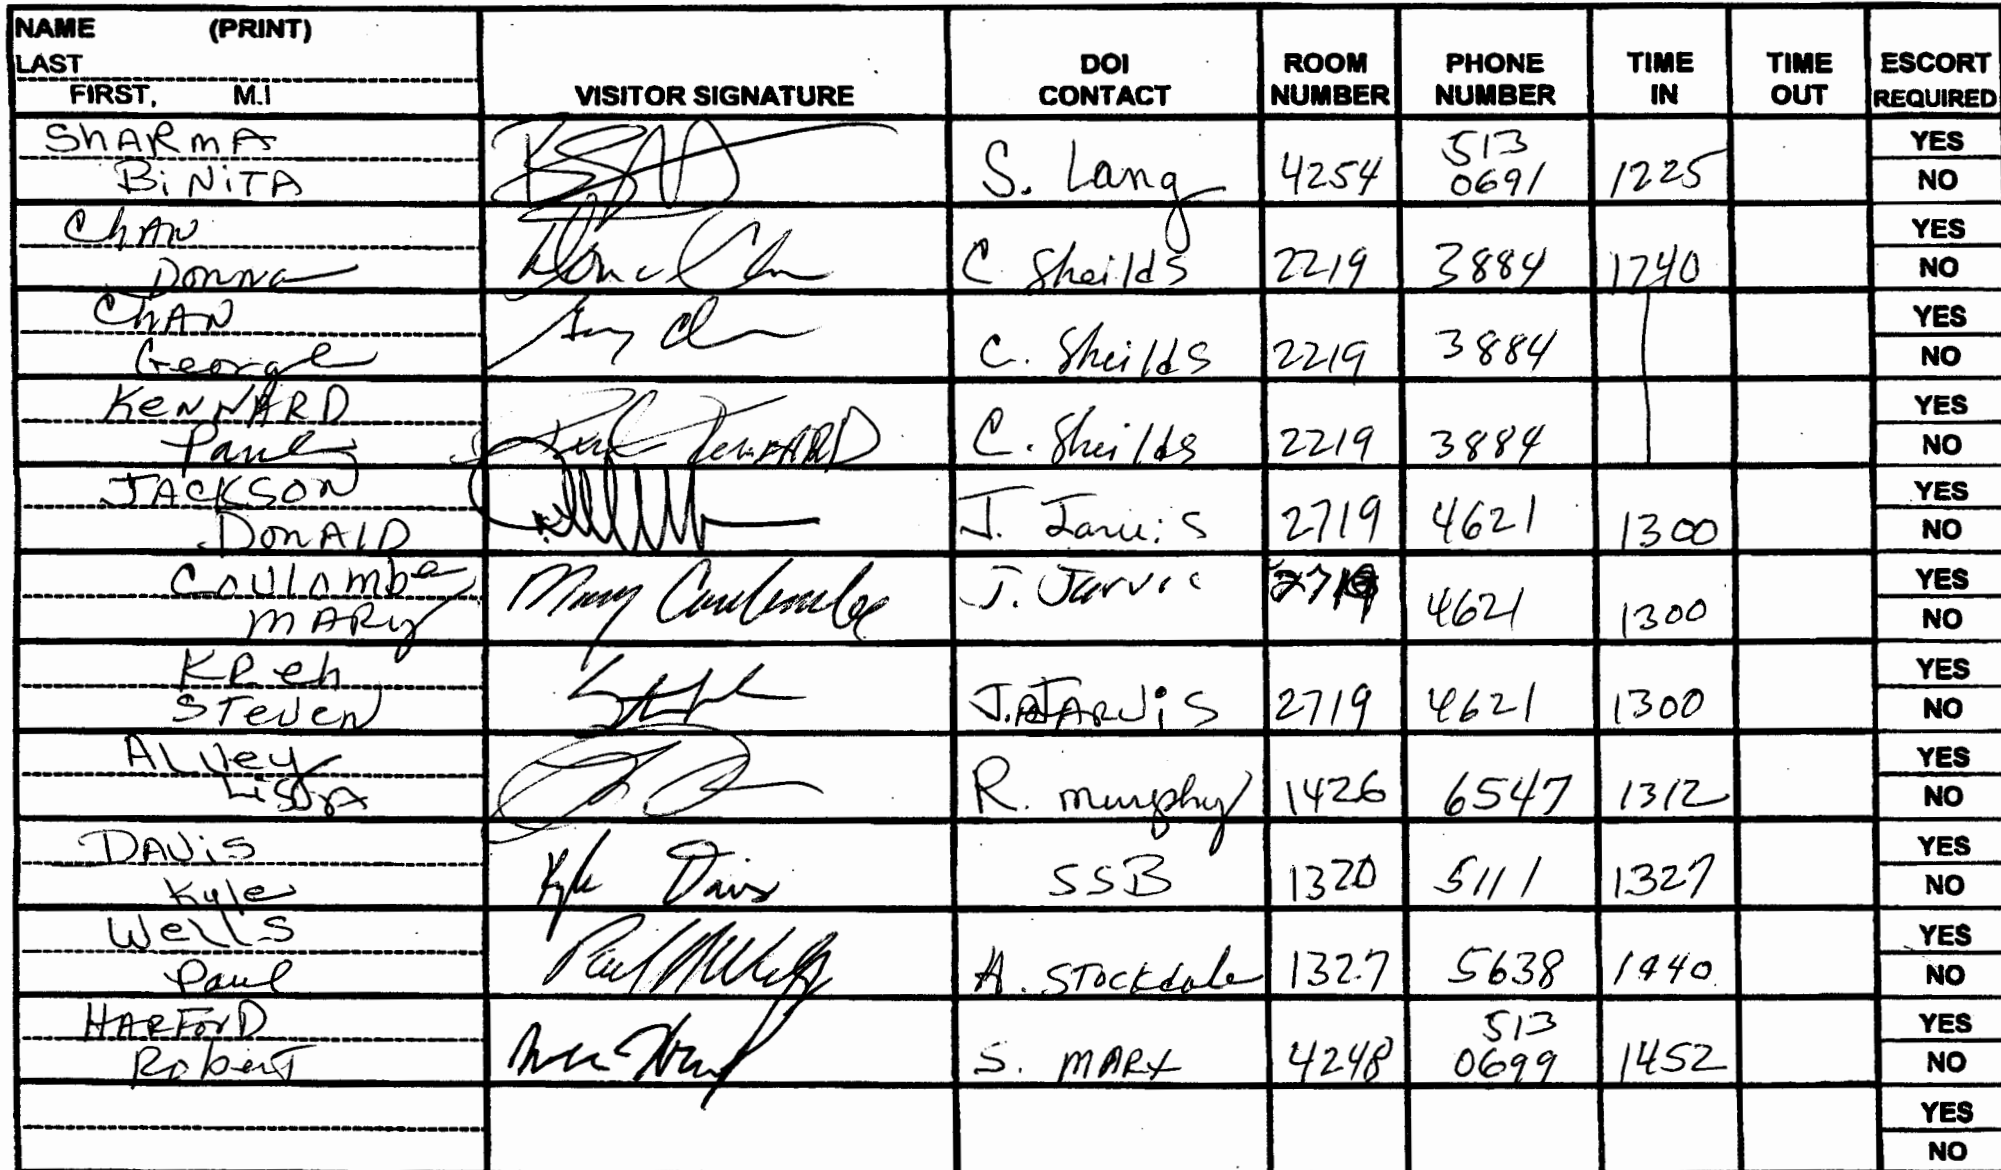 NAME (PRINT)
LAST
FIRST, M.I
VISITOR SIGNATURE
DOI CONTACT
ROOM NUMBER
PHONE NUMBER
TIME IN
TIME OUT
ESCORT REQUIRED
SHARMA
BiNiTA
S. Lang
4254
513
0691
1225
YES
NO
ChAN
Donna
C Sheilds
2219
3884
1240
YES
NO
ChAN
George
C. Sheilds
2219
3884
YES
NO
KeNNARD
Paul
Paul KennARD
C. Sheilds
2219
3884
YES
NO
JACKSON
DonAlD
J. Jarvis
2719
4621
1300
YES
NO
Coulombe
MARy
Mary Coulombe
J. Jarvis
2719
4621
1300
YES
NO
KReh
STeven
J. JARViS
2719
4621
1300
YES
NO
ALVey
R. murphy
1426
6547
1312
YES
NO
DAViS
Kyle
Kyle Davis
SSB
1320
5111
1327
YES
NO
Wells
Paul
A. STockdale
1327
5638
1440
YES
NO
HARForD
RoberT
S. MARX
4248
513
0699
1452
YES
NO
YES
NO